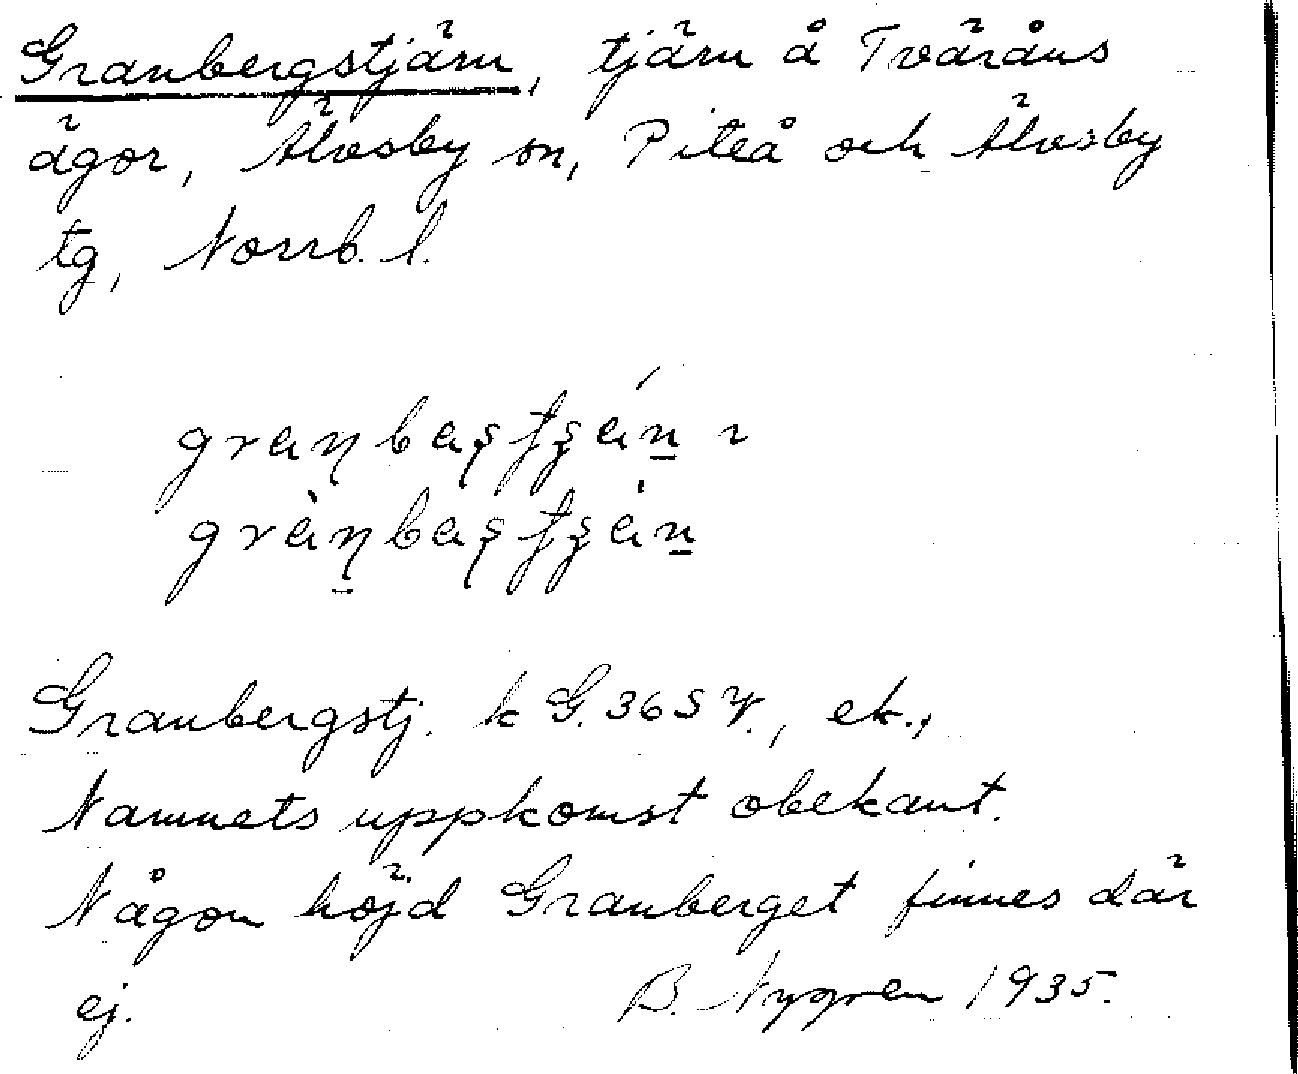 Granbergstjärn, tjärn å Tväråns
ägor, Älvsby sn, Piteå och Älvsby
tg, Norrb. l.
Granbergstj. k G. 36 S V., ek.,
Namnets uppkomst obekant.
Någon höjd Granberget finnes där
ej. B. Nygren 1935.